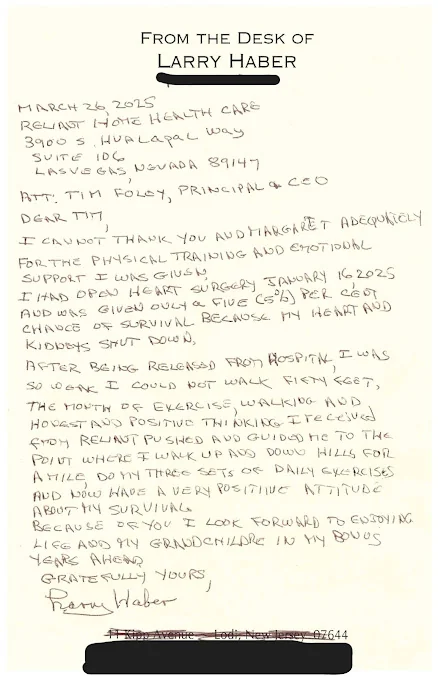 FROM THE DESK OF
LARRY HABER
MARCH 26, 2025
RELIANT HOME HEALTH CARE
3900 S. HUALAPAI WAY
SUITE 106
LAS VEGAS, NEVADA 89147
ATT: TIM FOLEY, PRINCIPAL & CEO
DEAR TIM,
I CANNOT THANK YOU AND MARGARET ADEQUATELY
FOR THE PHYSICAL TRAINING AND EMOTIONAL
SUPPORT I WAS GIVEN.
I HAD OPEN HEART SURGERY JANUARY 16, 2025
AND WAS GIVEN ONLY A FIVE (5%) PER CENT
CHANCE OF SURVIVAL BECAUSE MY HEART AND
KIDNEYS SHUT DOWN.
AFTER BEING RELEASED FROM HOSPITAL, I WAS
SO WEAK I COULD NOT WALK FIFTY FEET.
THE MONTH OF EXERCISE, WALKING AND
HONEST AND POSITIVE THINKING I received
FROM RELIANT PUSHED AND GUIDED ME TO THE
POINT WHERE I WALK UP AND DOWN HILLS FOR
A MILE, DO MY THREE SETS OF DAILY EXERCISES
AND NOW HAVE A VERY POSITIIVE ATTITUDE
ABOUT MY SURVIVAL
BECAUSE OF YOU I LOOK FORWARD TO ENJOYING
LIFE AND MY GRANDCHILDRE IN MY BONUS
YEARS AHEAD
GRATEFULLY YOURS,
Larry Haber
11 Kipp Avenue Lodi, New Jersey 07644